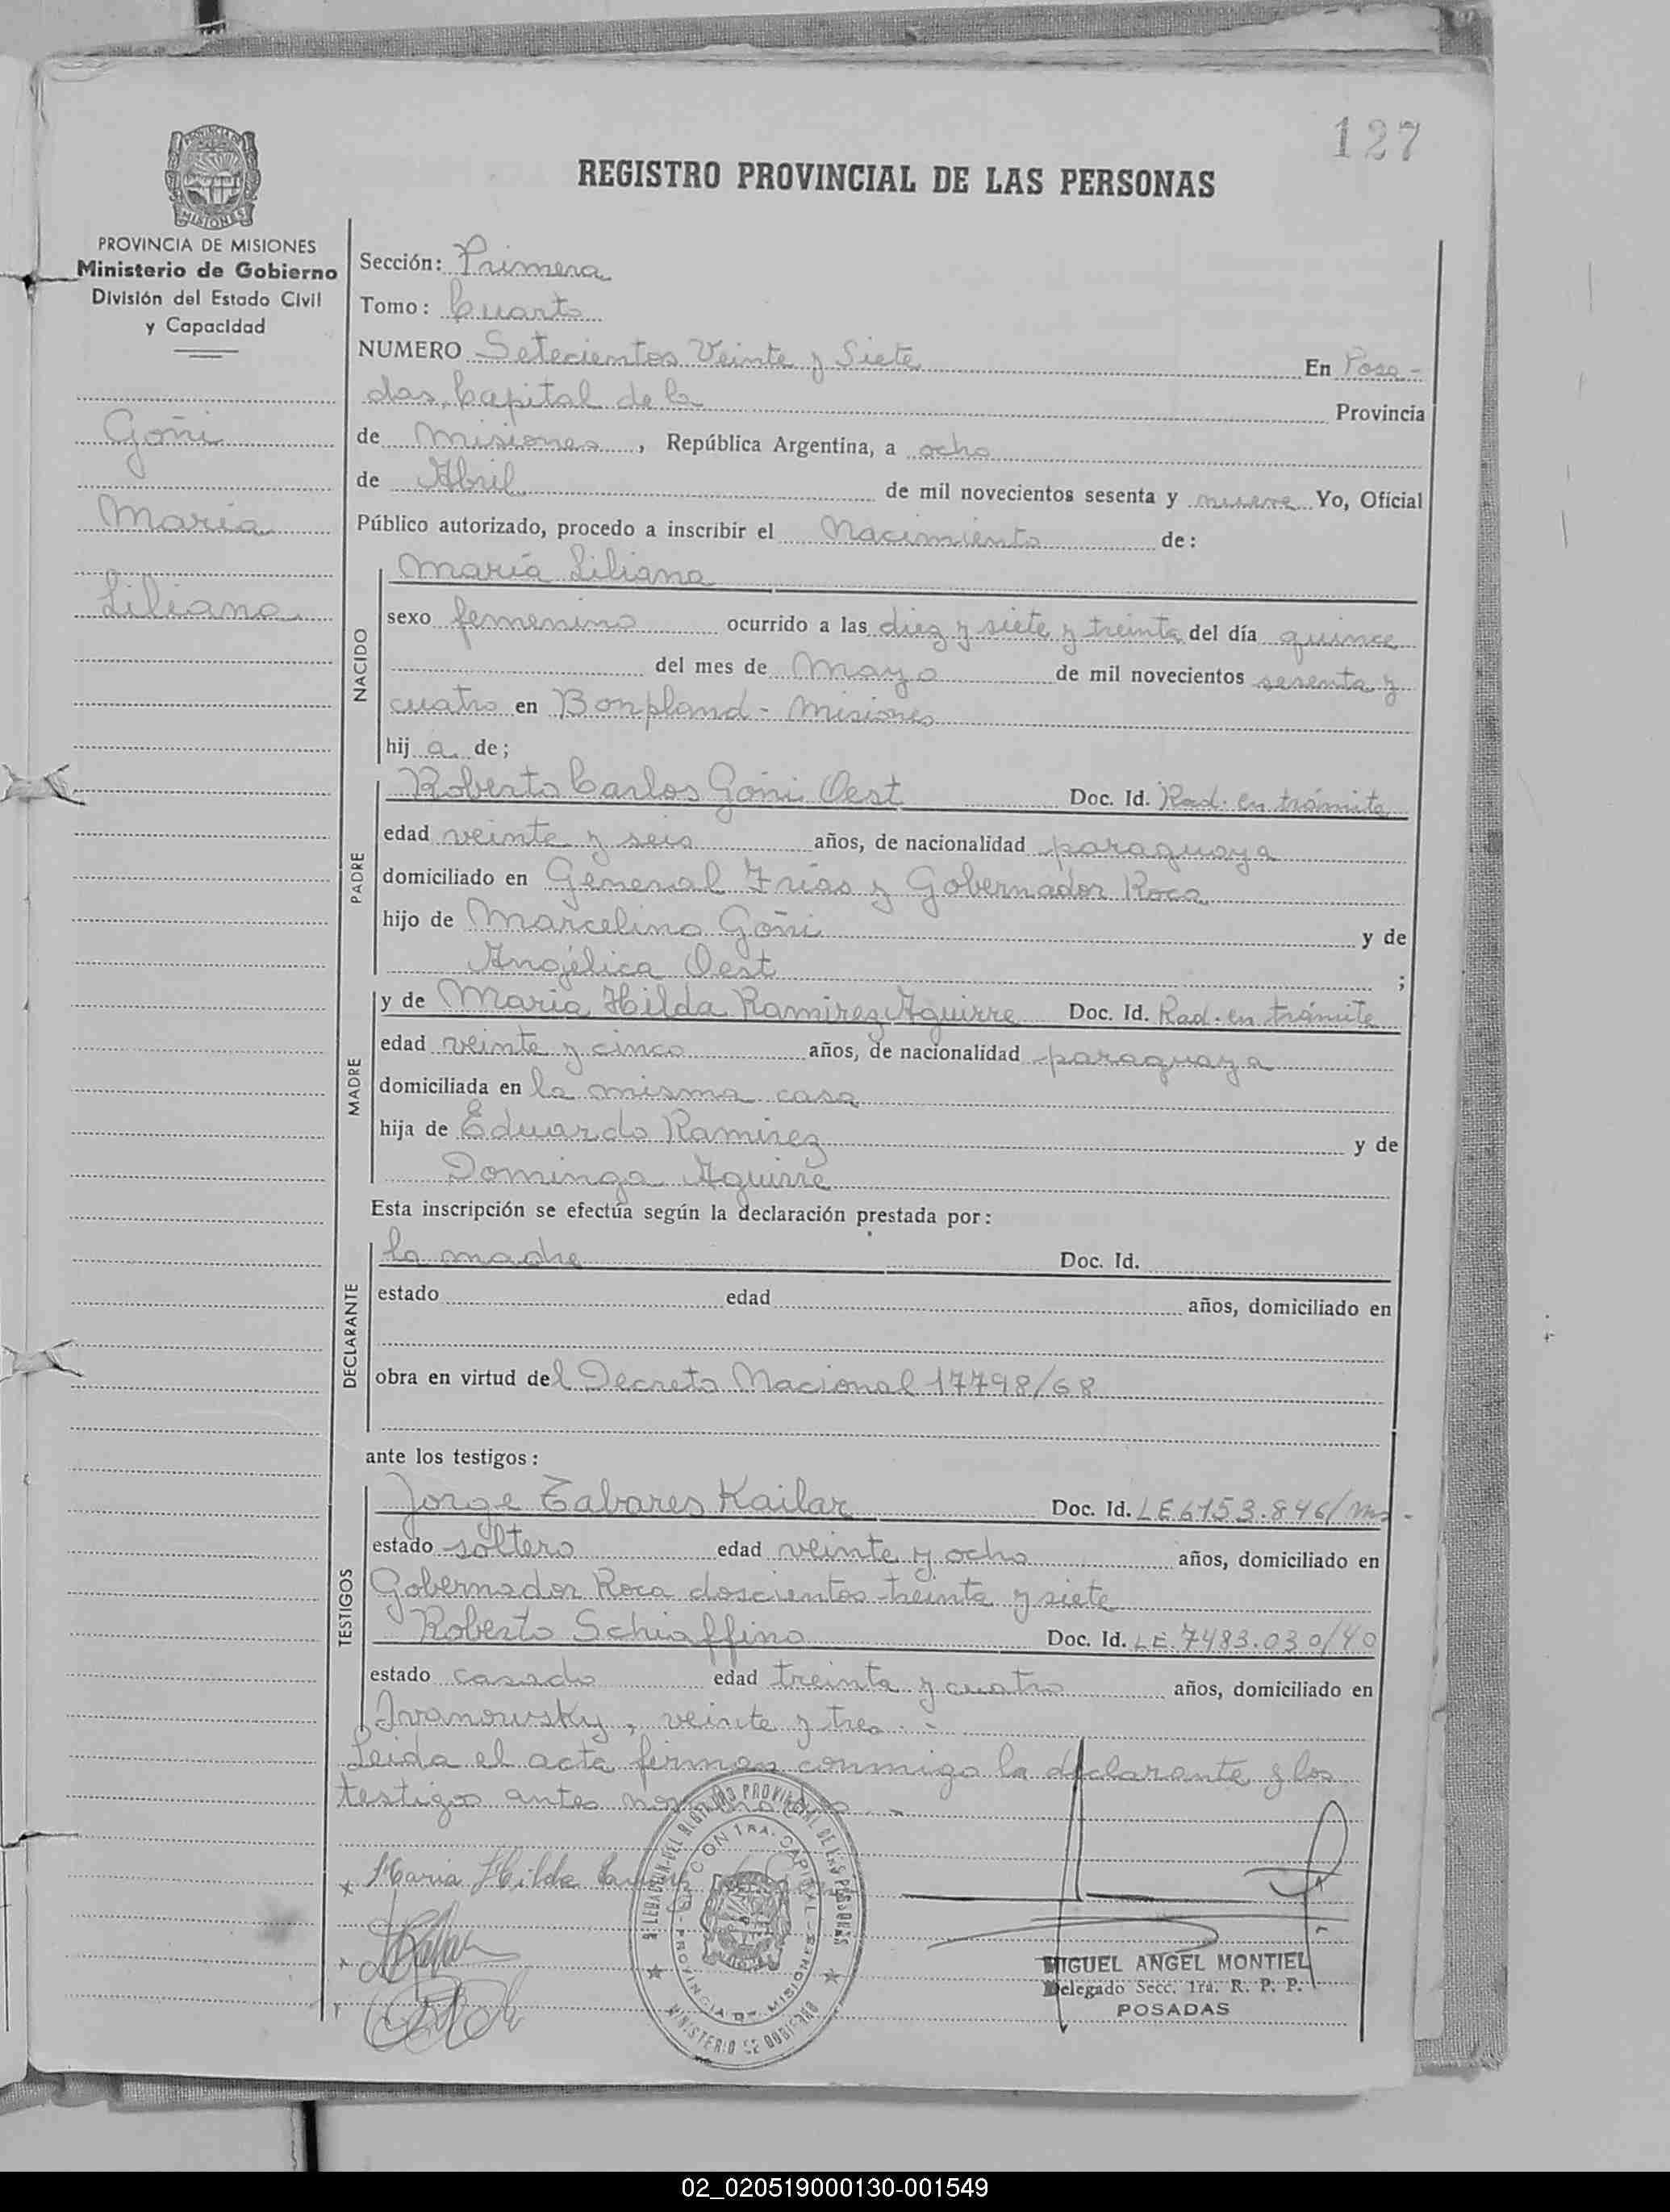 127
REGISTRO PROVINCIAL DE LAS PERSONAS
PROVINCIA DE MISIONES
Ministerio de Gobierno
División del Estado Civil
y Capacidad
Goñi
María
Liliana
Sección: Primera
Tomo: Cuarto
NUMERO Setecientos Veinte y Siete En Posa-
das, Capital de la Provincia
de Misiones, República Argentina, a ocho
de Abril de mil novecientos sesenta y nueve Yo, Oficial
Público autorizado, procedo a inscribir el Nacimiento de:
NACIDO
María Liliana
sexo femenino ocurrido a las diez y siete y treinta del día quince
del mes de Mayo de mil novecientos sesenta y
cuatro en Bonpland - Misiones
hij a de;
PADRE
Roberto Carlos Goñi Oest Doc. Id. Rad. en trámite
edad veinte y seis años, de nacionalidad paraguaya
domiciliado en General Frías y Gobernador Roca
hijo de Marcelino Goñi y de
Angélica Oest ;
MADRE
y de María Hilda Ramirez Aguirre Doc. Id. Rad. en trámite
edad veinte y cinco años, de nacionalidad paraguaya
domiciliada en la misma casa
hija de Eduardo Ramirez y de
Dominga Aguirre
Esta inscripción se efectúa según la declaración prestada por:
DECLARANTE
la madre Doc. Id.
estado edad años, domiciliado en
obra en virtud del Decreto Nacional 17798/68
ante los testigos:
TESTIGOS
Jorge Tabares Kailar Doc. Id. LE 6153.846/Ms-
estado soltero edad veinte y ocho años, domiciliado en
Gobernador Roca doscientos treinta y siete
Roberto Schiaffino Doc. Id. LE. 7483.030/40
estado casado edad treinta y cuatro años, domiciliado en
Ivanowsky, veinte y tres.-
Leida el acta firman conmigo la declarante y los
testigos antes
María Hilda
DELEGACION DEL REGISTRO PROVINCIAL DE LAS PERSONAS
SECCION 1RA. CAPITAL - PROVINCIA DE MISIONES
MINISTERIO DE GOBIERNO
MIGUEL ANGEL MONTIEL
Delegado Secc. 1ra. R. P. P.
POSADAS
02_020519000130-001549